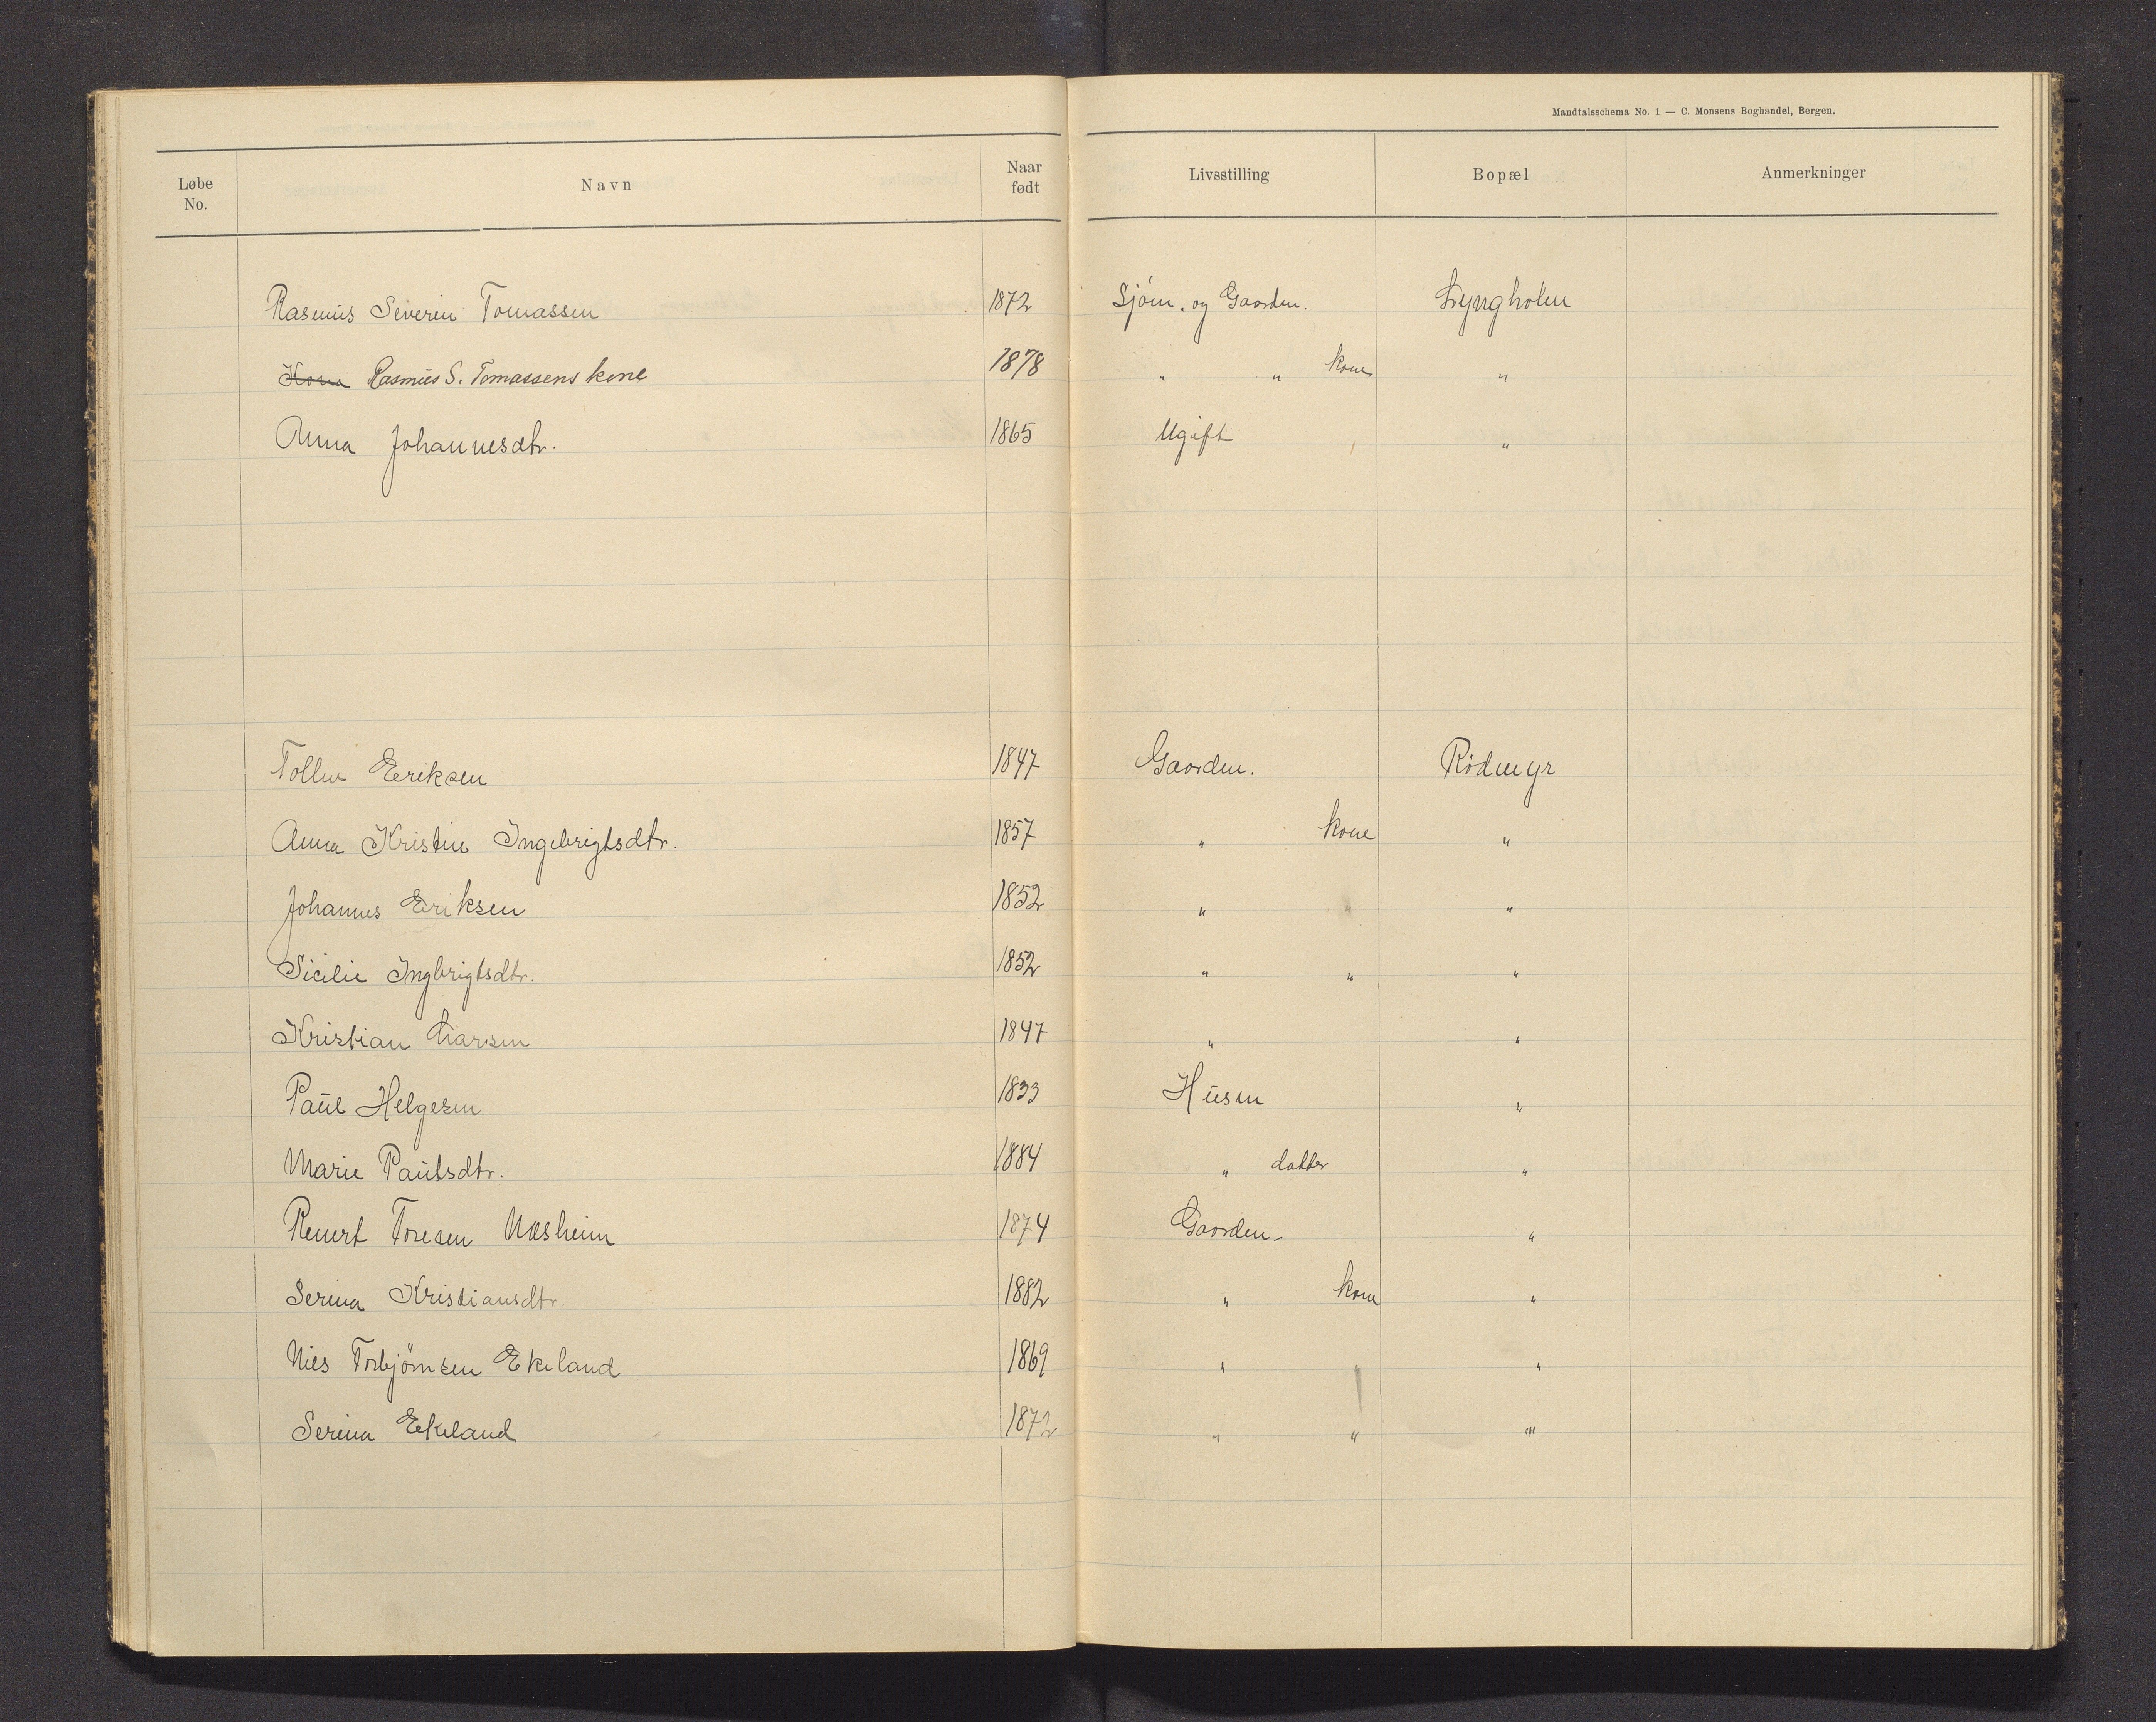 Mandtalsschema No. 1 — C. Monsens Boghandel, Bergen.
Løbe No. Navn Naar født Livsstilling Bopæl Anmerkninger
Rasmus Severin Tomassen 1872 Sjøm. og Gaarden. Lyngholm
Kona Rasmus S. Tomassens kone 1878 " " kone "
Anna Johannesdtr. 1865 Ugift "
Tollev Eriksen 1847 Gaarden. Rödmyr
Anna Kristine Ingebrigtsdtr. 1857 " kone "
Johannes Eriksen 1852 " "
Sicilie Ingbrigtsdtr. 1852 " " "
Kristian Larsen 1847 " "
Paul Helgesen 1833 Husm "
Marie Paulsdtr. 1884 " datter "
Renert Toresen Næsheim 1874 Gaarden. "
Serina Kristiansdtr. 1882 " kone "
Nils Torbjörnsen Ekeland 1869 " "
Serina Ekeland 1872 " " "